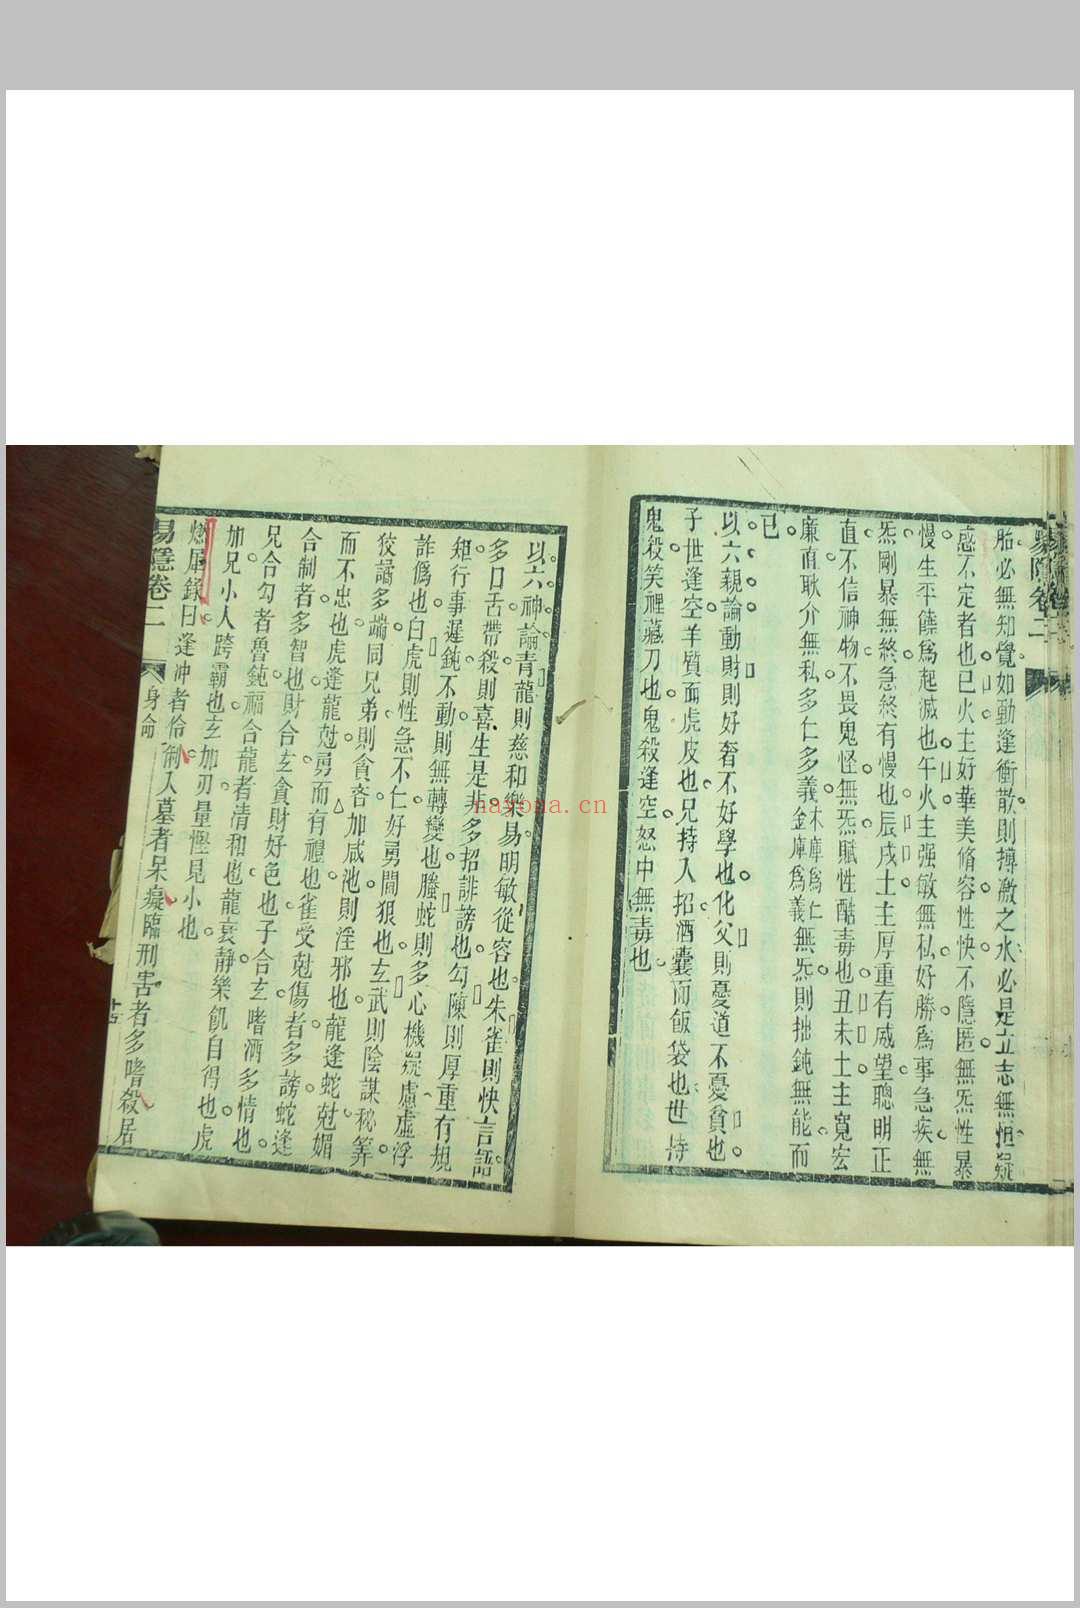 胎必無知覺如動逢衝散則搏激之水必是立志無恒疑
惑不定者也巳火主好華美脩容性快不隱匿無炁性暴
慢生平饒爲起滅也午火主强敏無私好勝爲事急疾無
炁剛暴無終急終有慢也辰戌土主厚重有威望聰明正
直不信神物不畏鬼怪無炁賦性酷毒也丑未土主寬宏
廉直耿介無私多仁多義木庫爲仁金庫爲義無炁則拙鈍無能而
已
以六親論動財則好奢不好學也化父則憂道不憂貧也
子世逢空羊質而虎皮也兄持入招酒囊而飯袋也世持
鬼殺笑裡藏刀也鬼殺逢空怒中無毒也
易隱卷二
以六神論青龍則慈和樂易明敏從容也朱雀則快言語
多口舌帶殺則喜生是非多招誹謗也勾陳則厚重有規
矩行事遲鈍不動則無轉變也螣蛇則多心機疑慮虛浮
詐僞也白虎則性急不仁好勇鬪狠也玄武則陰謀秘筭
狡譎多端同兄弟則貪吝加咸池則淫邪也龍逢蛇尅媚
而不忠也虎逢龍尅勇而有禮也雀受尅傷者多謗蛇逢
合制者多智也財合玄貪財好色也子合玄嗜酒多情也
兄合勾者魯鈍福合龍者清和也龍衰靜樂飢自得也虎
加兄小人跨霸也玄加刃量慳見小也
燃犀錄曰逢冲者伶俐入墓者呆癡臨刑害者多嗜殺居
易隱卷二
身命
十五
nayona.cn